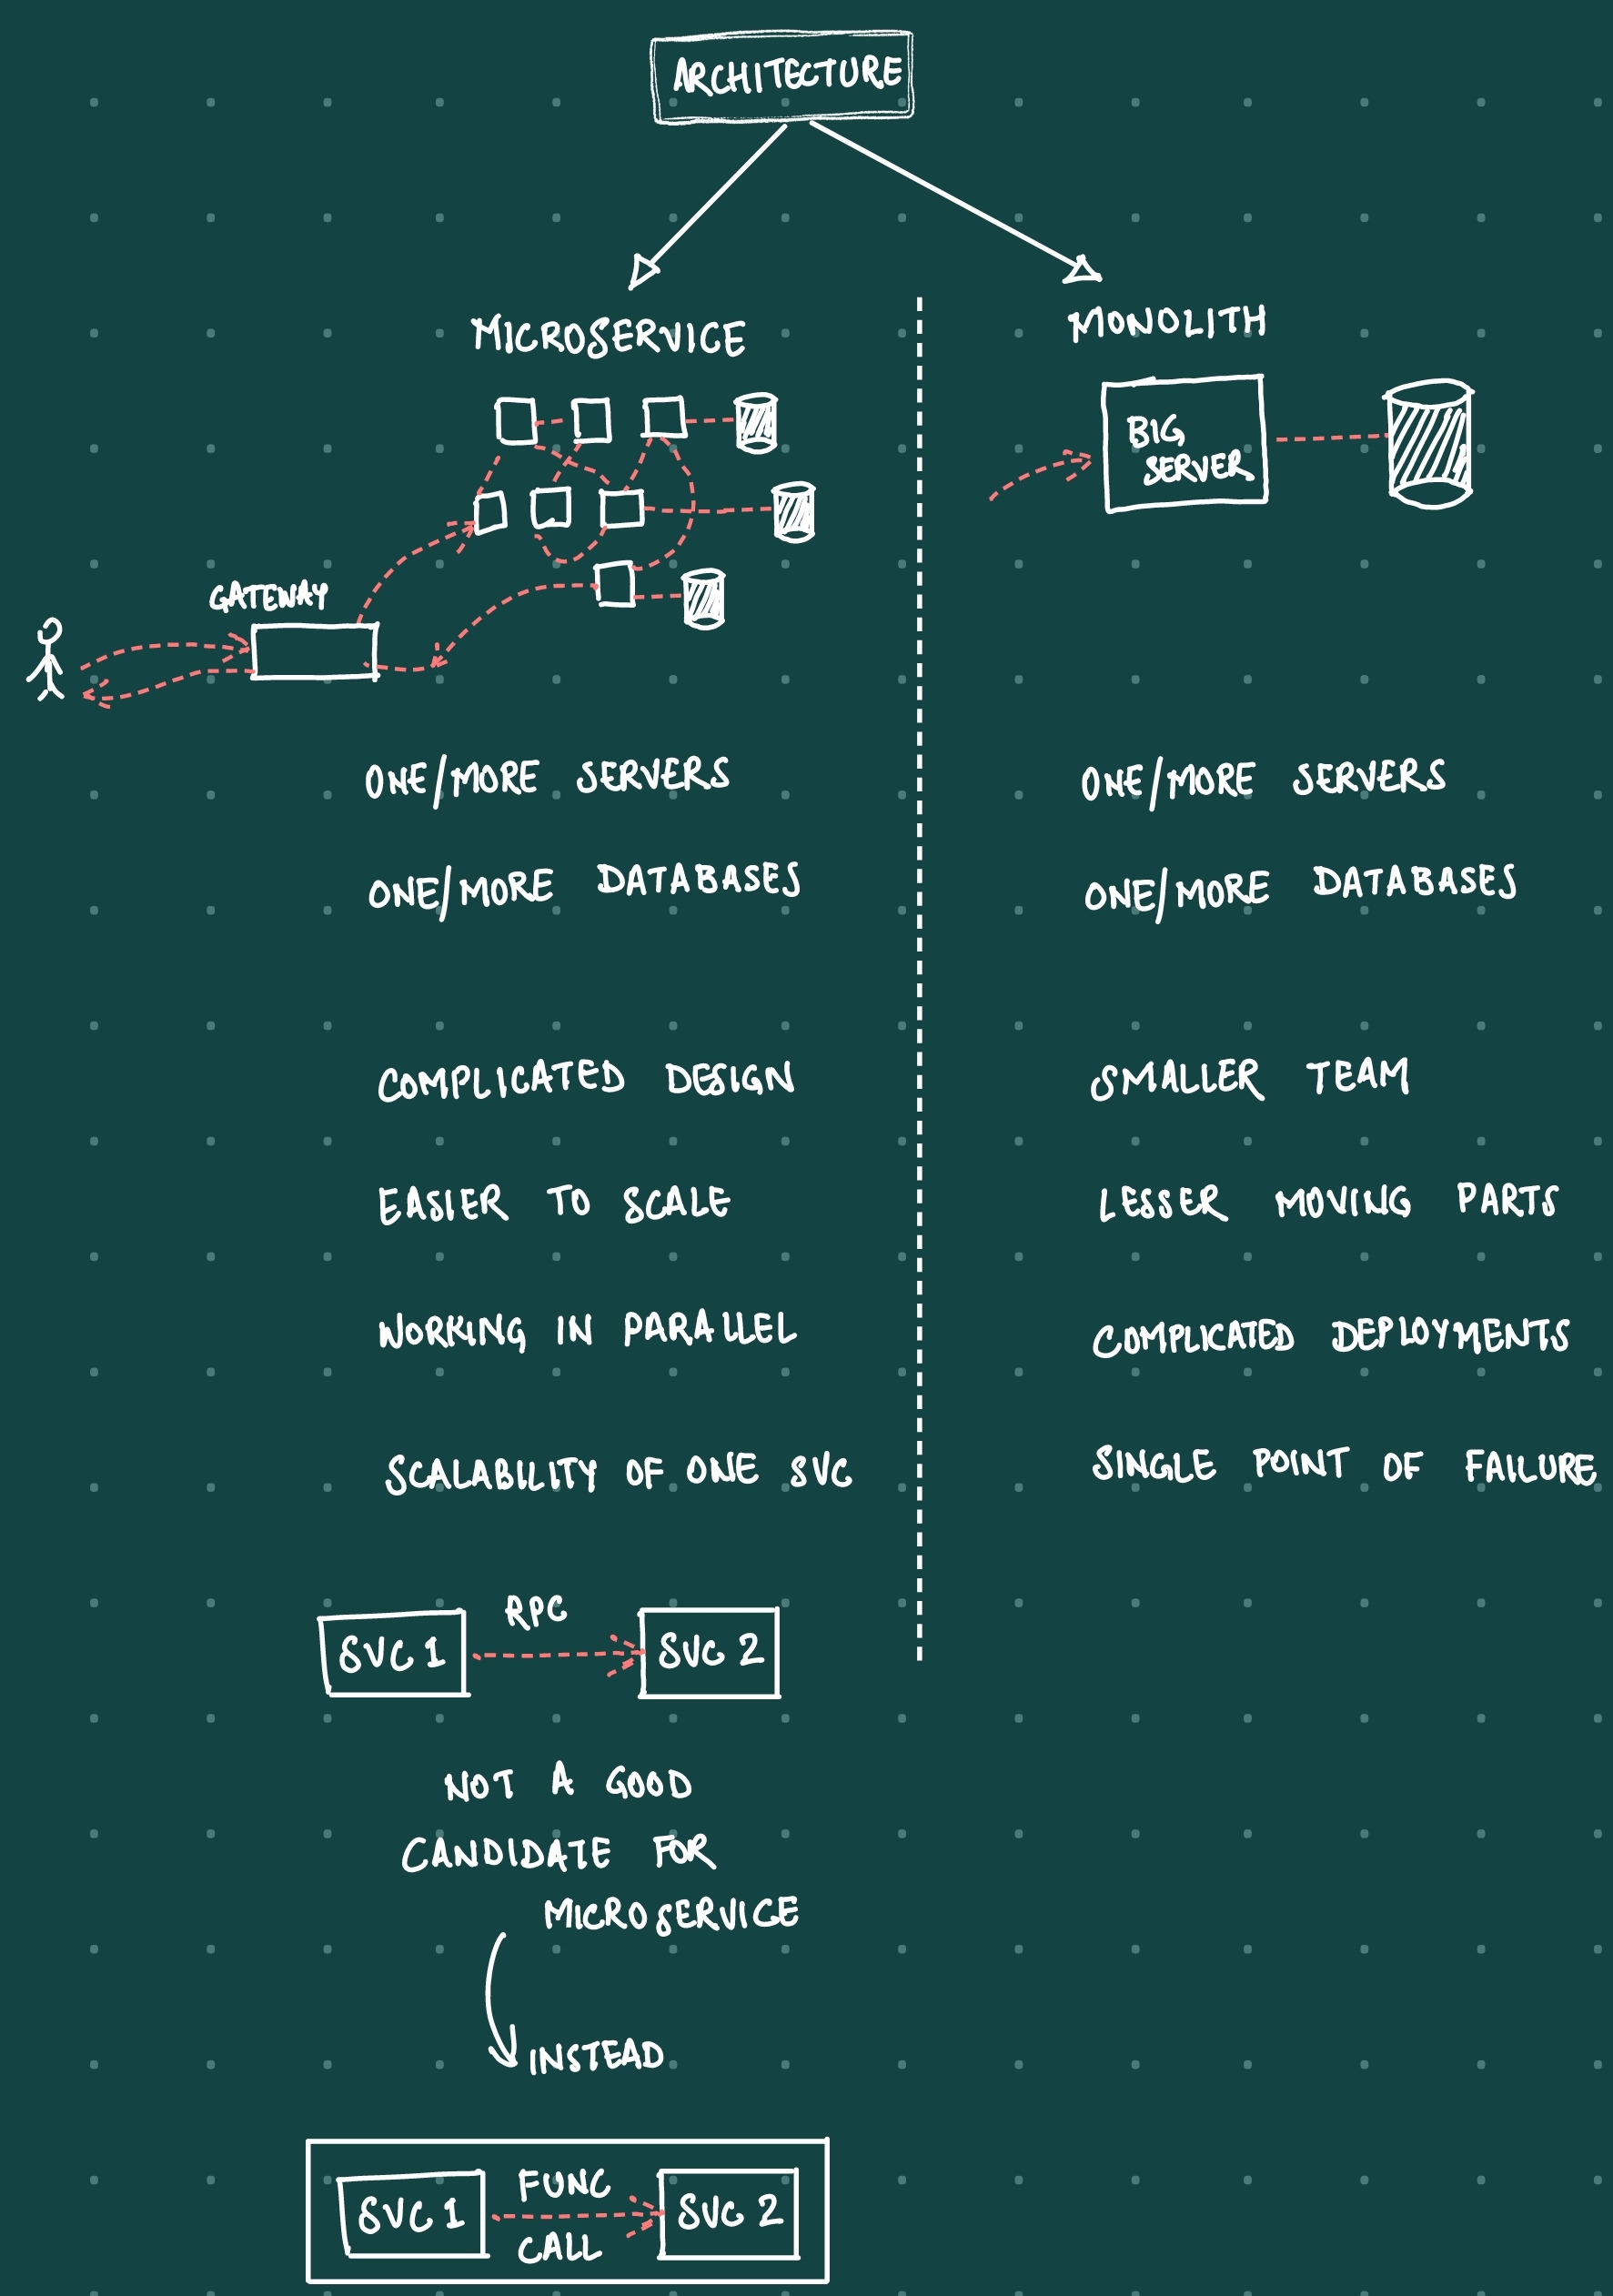 ARCHITECTURE
MICROSERVICE
GATEWAY
ONE/MORE SERVERS
ONE/MORE DATABASES
COMPLICATED DESIGN
EASIER TO SCALE
WORKING IN PARALLEL
SCALABILITY OF ONE SVC
SVC 1
RPC
SVC 2
NOT A GOOD
CANDIDATE FOR
MICROSERVICE
INSTEAD
SVC 1
FUNC
CALL
SVC 2
MONOLITH
BIG
SERVER
ONE/MORE SERVERS
ONE/MORE DATABASES
SMALLER TEAM
LESSER MOVING PARTS
COMPLICATED DEPLOYMENTS
SINGLE POINT OF FAILURE